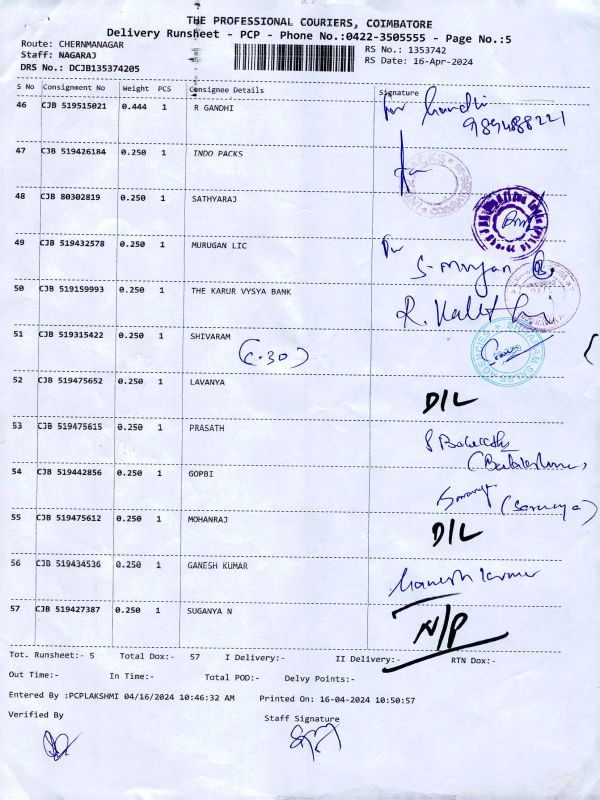 THE PROFESSIONAL COURIERS, COIMBATORE
Delivery Runsheet - PCP - Phone No.:0422-3505555 - Page No.:5
Route: CHERNMANAGAR RS No.: 1353742
Staff: NAGARAJ RS Date: 16-Apr-2024
DRS No.: DCJB135374205
S No Consignment No Weight PCS Consignee Details Signature
46 CJB 519515021 0.444 1 R GANDHI for Gandhi
9894088221
47 CJB 519426184 0.250 1 INDO PACKS
48 CJB 80302819 0.250 1 SATHYARAJ
49 CJB 519432578 0.250 1 MURUGAN LIC
50 CJB 519159993 0.250 1 THE KARUR VYSYA BANK
51 CJB 519315422 0.250 1 SHIVARAM
(C-30)
52 CJB 519475652 0.250 1 LAVANYA D/L
53 CJB 519475615 0.250 1 PRASATH
54 CJB 519442856 0.250 1 GOPBI
55 CJB 519475612 0.250 1 MOHANRAJ D/L
56 CJB 519434536 0.250 1 GANESH KUMAR
57 CJB 519427387 0.250 1 SUGANYA N N/P
Tot. Runsheet:- 5 Total Dox:- 57 I Delivery:- II Delivery:- RTN Dox:-
Out Time:- In Time:- Total POD:- Delvy Points:-
Entered By :PCPLAKSHMI 04/16/2024 10:46:32 AM Printed On: 16-04-2024 10:50:57
Verified By Staff Signature